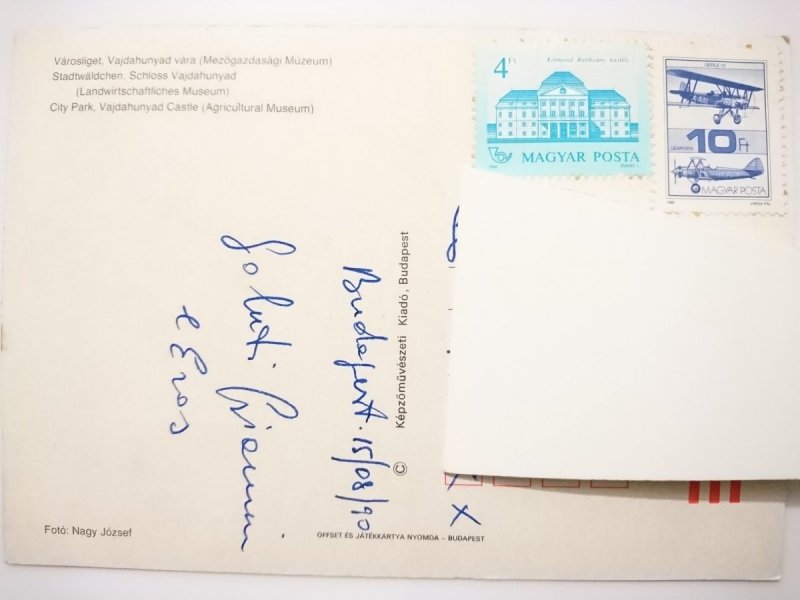 Városliget, Vajdahunyad vára (Mezőgazdasági Múzeum)
Stadtwäldchen, Schloss Vajdahunyad
(Landwirtschaftliches Museum)
City Park, Vajdahunyad Castle (Agricultural Museum)
4 Ft
Körmend Batthyány-kastély
MAGYAR POSTA
1986
GERLE 13
LÉGIPOSTA
10 Ft
MAGYAR POSTA
VARGA PÁL
Budapest. 15/08/90
Saluti Gianni
e Eros
© Képzőművészeti Kiadó, Budapest
X X
Fotó: Nagy József
OFFSET ÉS JÁTÉKKÁRTYA NYOMDA – BUDAPEST